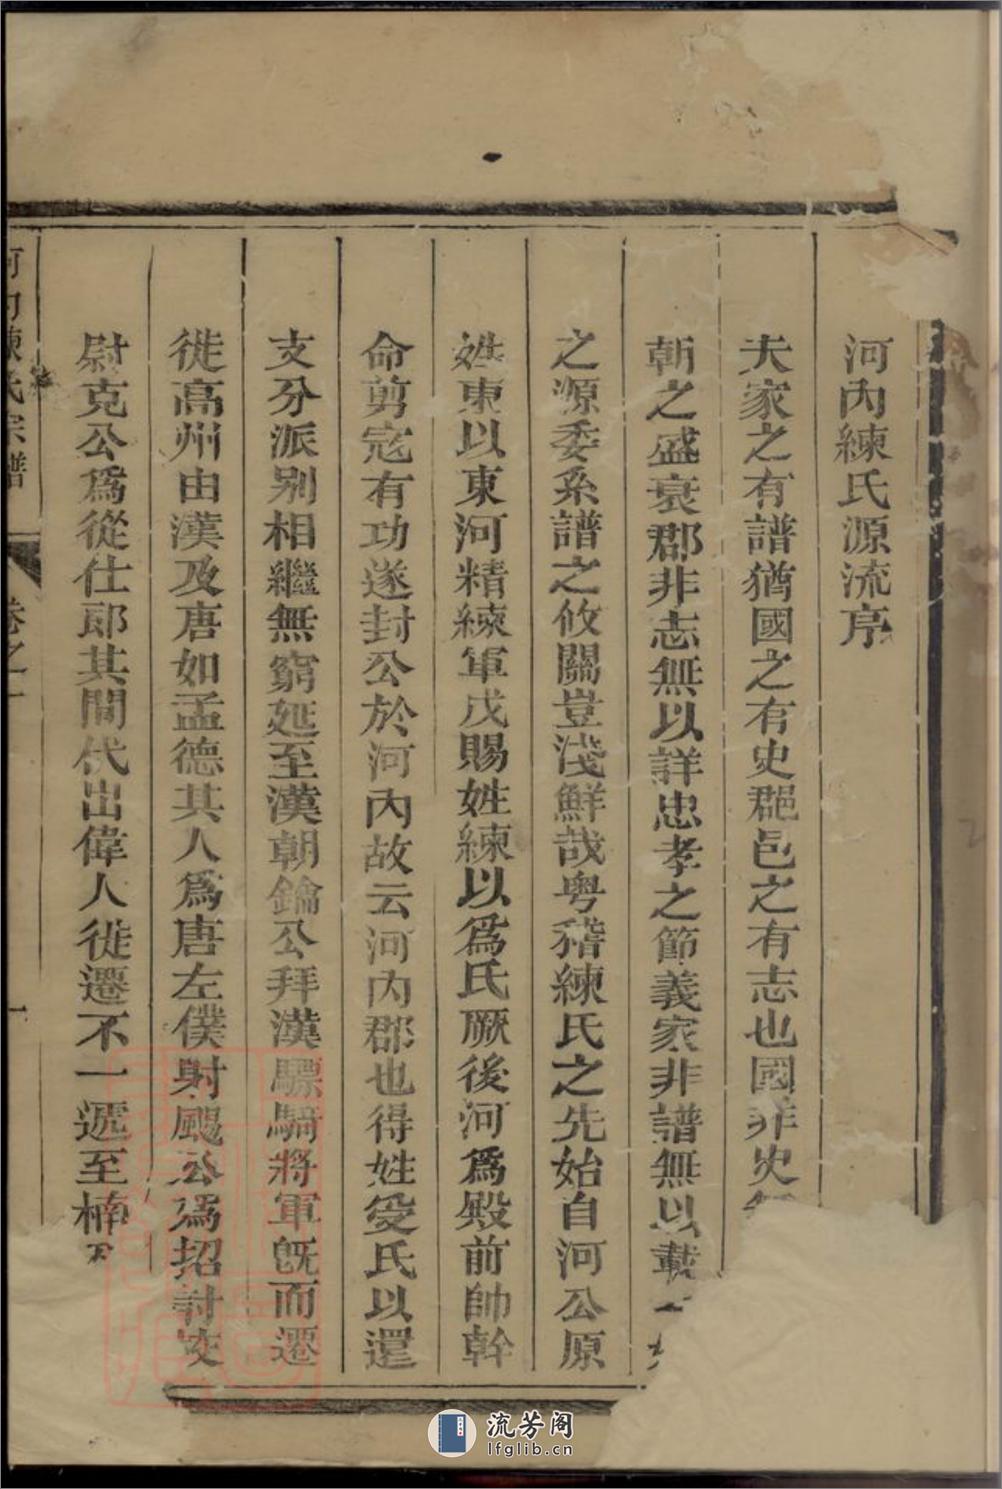 河內練氏源流序
夫家之有譜猶國之有史郡邑之有志也國非史
朝之盛衰郡非志無以詳忠孝之節義家非譜無以載
之源委系譜之攸關豈淺鮮哉粵稽練氏之先始自河公原
姓東以東河精練軍戊賜姓練以爲氏厥後河爲殿前帥幹
命剪寇有功遂封公於河內故云河內郡也得姓受氏以還
支分派别相繼無窮延至漢朝鑰公拜漢驃騎將軍旣而遷
徙高州由漢及唐如孟德其人爲唐左僕射颺公爲招討
尉克公爲從仕郎其間代出偉人徙遷不一遞至楠
河內練氏宗譜 卷之一 一
流芳阁
lfglib.cn